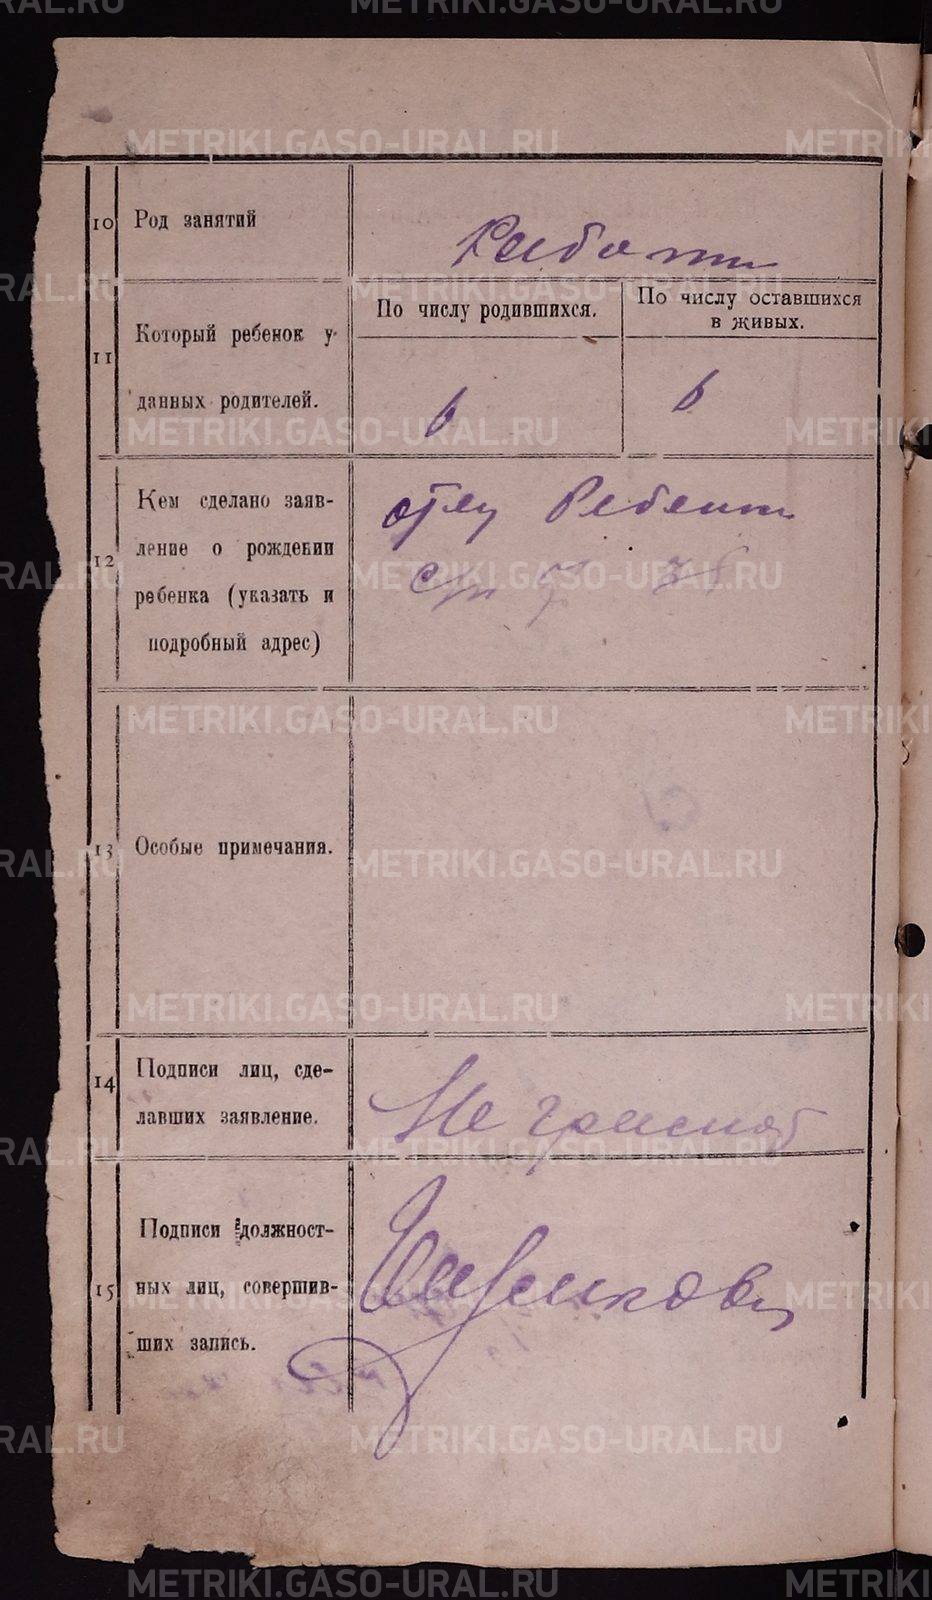 10 Род занятий
11 Который ребенок у данных родителей.
По числу родившихся.
По числу оставшихся
в живых.
6
6
12 Кем сделано заяв-
ление о рождении
ребенка (указать и
подробный адрес)
отец Ребенка
13 Особые примечания.
14 Подписи лиц, сде-
лавших заявление.
Не грамот
15 Подписи должност-
ных лиц, совершив-
ших запись.
METRIKI.GASO-URAL.RU